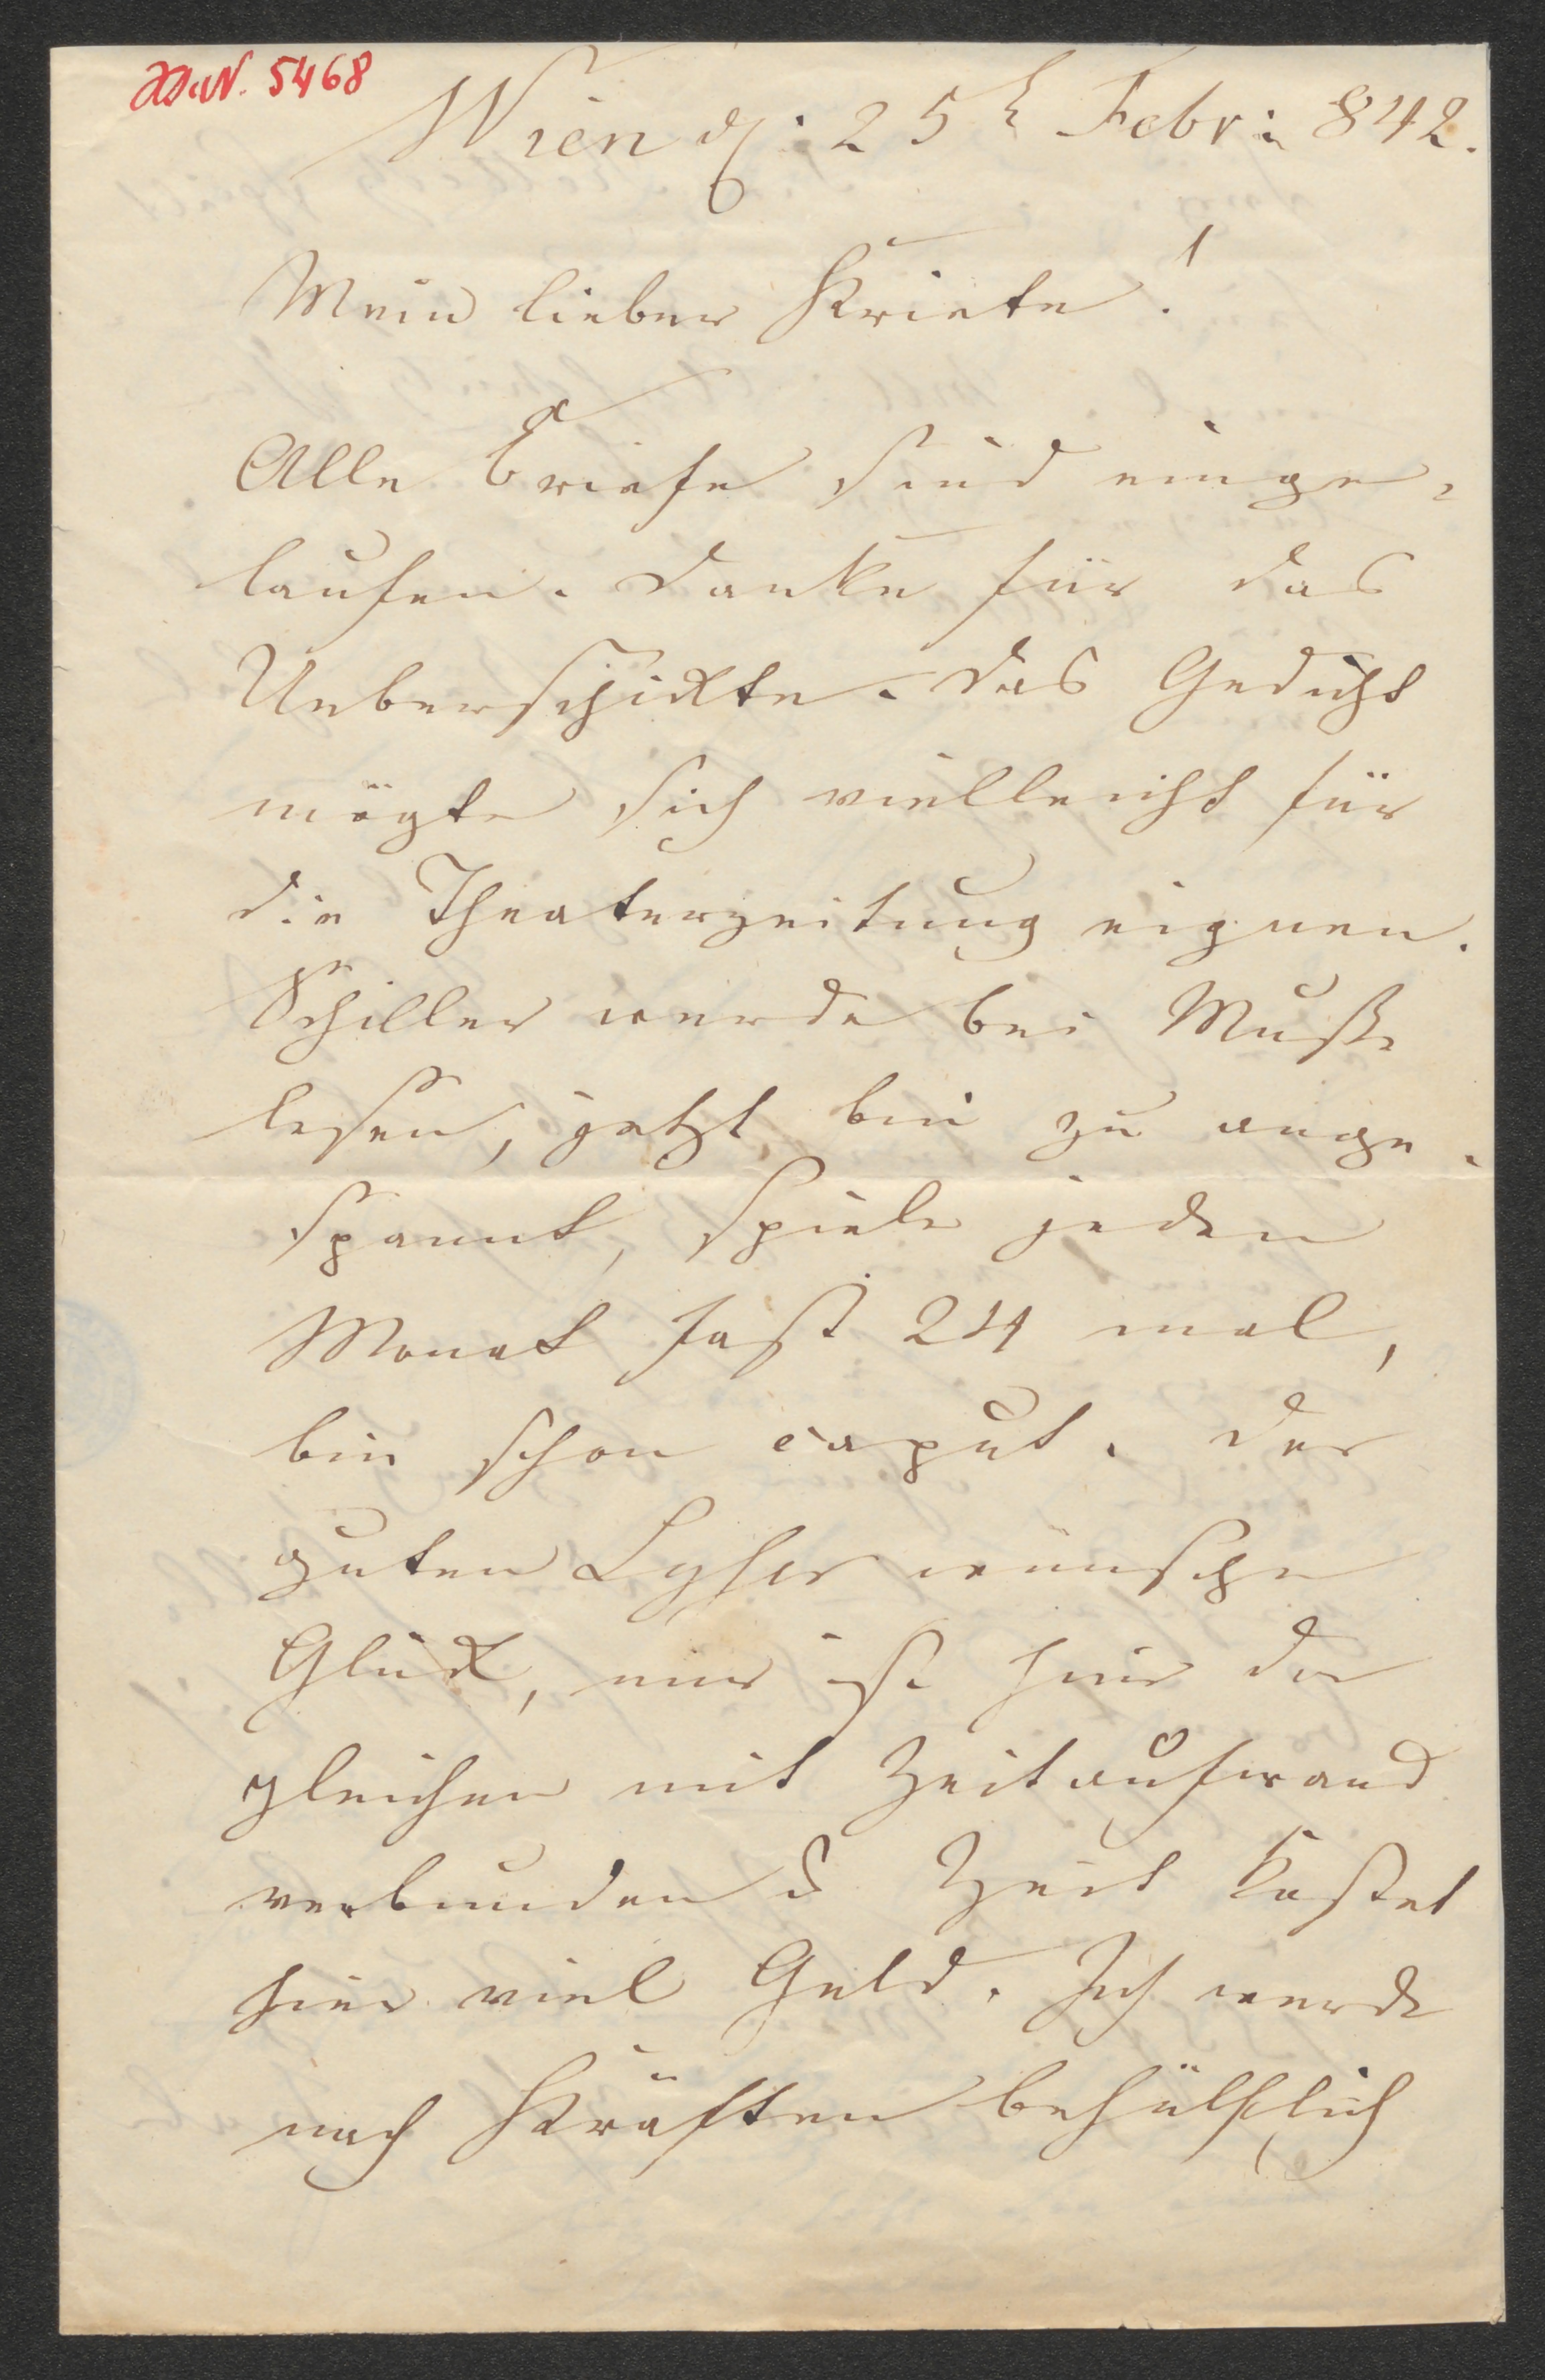 5468
Wien d: 25t Febr: 842.
Mein lieber Kriete!
Alle Briefe sind einge-
laufen. Danke für das
Ueberschickte. Das Gedicht
mögte sich vielleicht für
die Theaterzeitung eignen.
Schiller werde bei Muße
lesen, jetzt bin zu ange-
spannt, spiele jeden
Monat fast 24 mal,
bin schon caput. Der
guten Lyser wünsche
Glück, nur ist hier der
gleichen mit Zeitaufwand
verbunden & Zeit kostet
hier viel Geld. Ich werde
nach Kräften behülflich